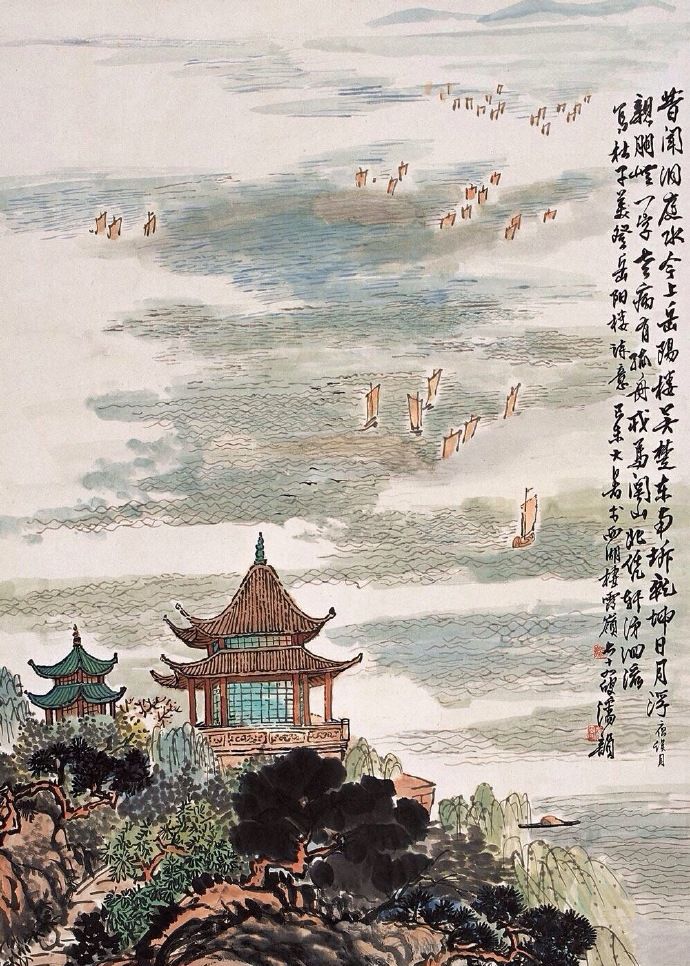 昔闻洞庭水今上岳陽楼吴楚东南坼乾坤日月浮 夜误月
親朋無一字老病有孤舟戎马関山北凭轩涕泗流
写杜子美登岳阳楼诗意 己未大暑于西湖栖霞嶺 七十叟潘韻